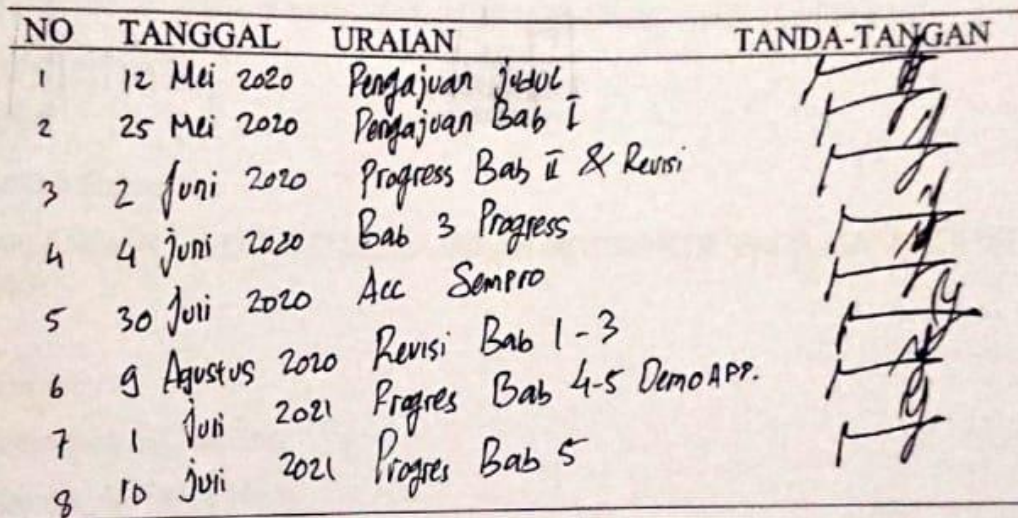 NO TANGGAL URAIAN TANDA-TANGAN
1 12 Mei 2020 Pengajuan judul
2 25 Mei 2020 Pengajuan Bab I
3 2 Juni 2020 Progress Bab II & Revisi
4 4 Juni 2020 Bab 3 Progress
5 30 Juli 2020 Acc Sempro
6 9 Agustus 2020 Revisi Bab 1-3
7 1 Juli 2021 Progres Bab 4-5 Demo APP.
8 10 Juli 2021 Progres Bab 5